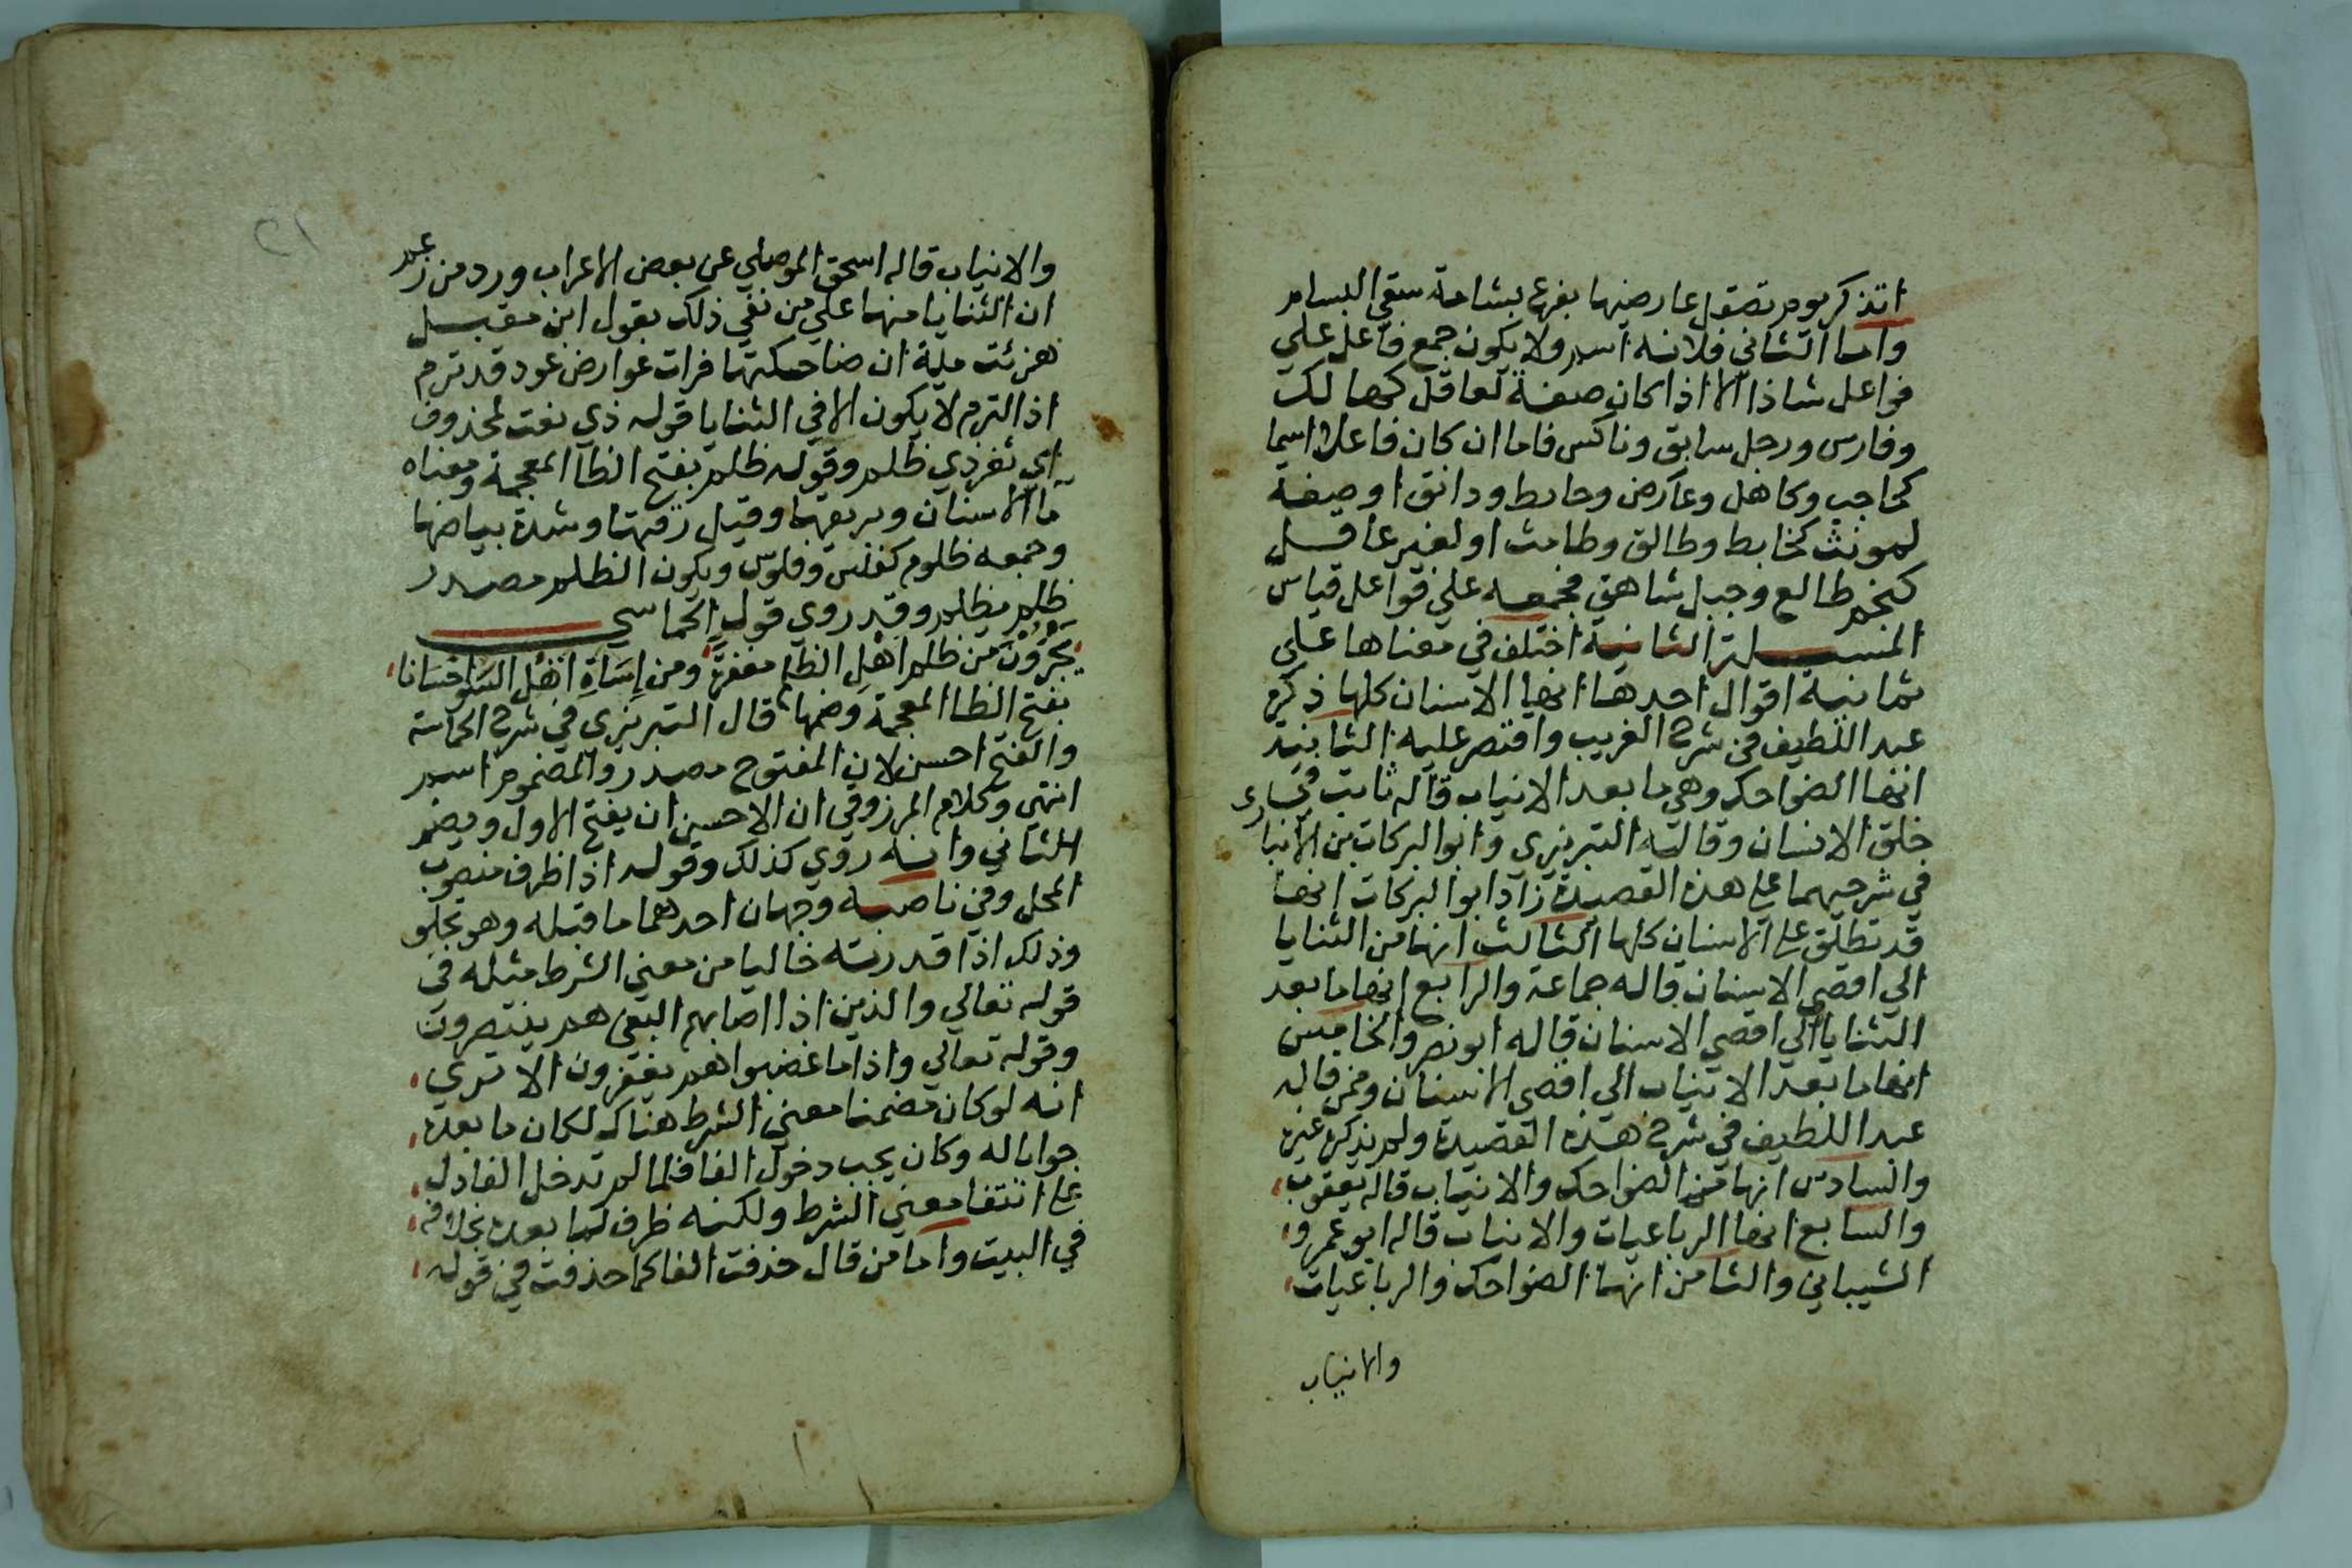 اتذكر يوم تصقل عارضيها بفرع بشامة سقي البسام
واما الثاني فلانه اسم ولا يكون جمع فاعل علي
فواعل شاذا الا اذا كان صفة لعاقل كهالك
وفارس ورجل سابق وناكس فاما ان كان فاعلا اسما
كحاجب وكاهل وعارض وحايط ودانق او صفة
لمونث كخابط وطالق وطامث او لغير عاقل
كنجم طالع وجبل شاهق فجمعه علي فواعل قياس
المسيلة الثانية اختلف في معناها علي
ثمانية اقوال احدها انها الاسنان كلها ذكره
عبد اللطيف في شرح الغريب واقتصر عليه الثا
انها الضواحك وهي ما بعد الانياب قاله ثابت في
خلق الانسان وقاله التبريزي وابو البركات بن الانباري
في شرحيهما علي هذه القصيدة زاد ابو البركات انها
قد تطلق علي الاسنان كلها الثالث انها من الثنايا
الي اقصي الاسنان قاله جماعة والرابع انها ما بعد
الثنايا الي اقصي الاسنان قاله ابو نصر والخامس
انها ما بعد الانياب الي اقصي الاسنان وممن قاله
عبد اللطيف في شرح هذه القصيدة ولم يذكر غيره
والسادس انها من الضواحك والانياب قاله يعقوب
والسابع انها الرباعيات والانياب قاله ابو عمرو
الشيباني والثامن انها الضواحك والرباعيات
والانياب
٢١
والانياب قاله اسحق الموصلي عن بعض الاعراب ورد من زعم
ان الثنايا منها علي من نفي ذلك بقول ابن مقبل
هزئت مية ان ضاحكتها فرات عوارض عود قد ثرم
اذ الثرم لا يكون الا في الثنايا قوله ذي نعت لمحذوف
اي ثغر ذي ظلم وقوله ظلم بفتح الظا المعجمة ومعناه
مآ الاسنان وبريقها وقيل رقتها وشدة بياضها
وجمعه ظلوم كفلس وفلوس ويكون الظلم مصدر
ظلم يظلم وقد روي قول الحماسي
يجزون من ظلم اهل الظلم مغفرة ومن اساة اهل السو احسانا
بفتح الظا المعجمة وضمها قال التبريزي في شرح الحماسة
والفتح احسن لان المفتوح مصدر والمضموم اسم
انتهي وكلام المرزوقي ان الاحسن ان يفتح الاول ويضم
الثاني وانه روي كذلك وقوله اذا ظرف منصوب
المحل وفي ناصبه وجهان احدهما ما قبله وهو تجلو
وذلك اذا قدرته خاليا من معني الشرط مثله في
قوله تعالي والذين اذا اصابهم البغي هم ينتصرون
وقوله تعالي واذا ما غضبوا هم يغفرون الا تري
انه لو كان مضمنا معني الشرط هناك لكان ما بعده
جوابا له وكان يجب دخول الفا فلما لم تدخل الفا دل
علي انتفا معني الشرط ولكنه ظرف لما بعده بخلافه
في البيت واما من قال حذفت الفا كما حذفت في قوله